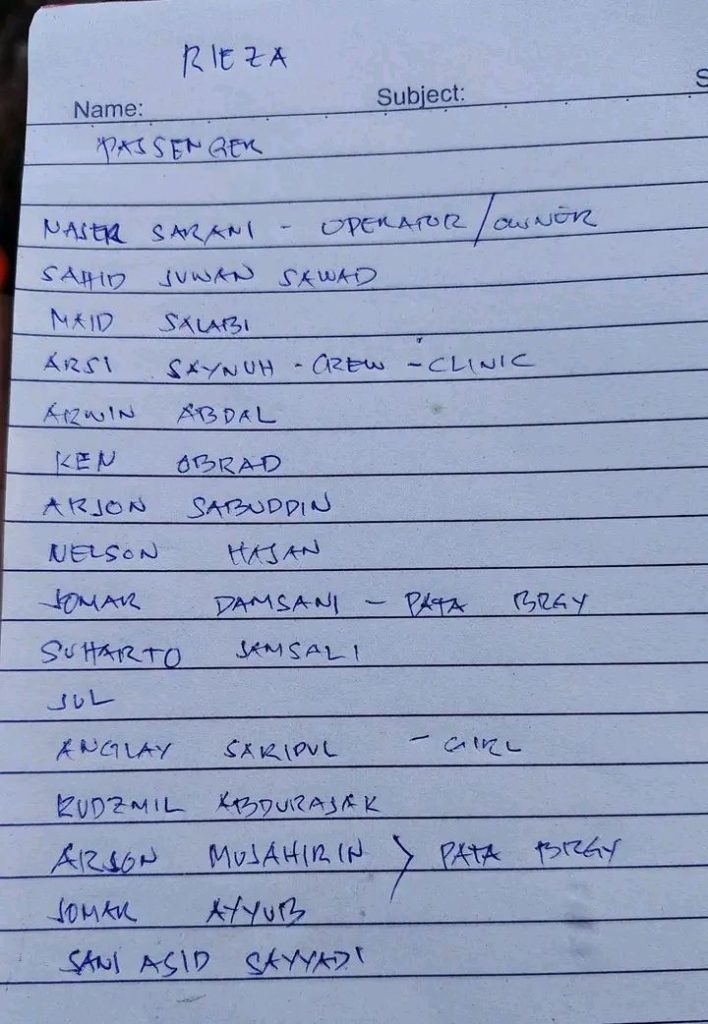 RIEZA
Name: Subject: S
PASSENGER
NASER SARANI - OPERATOR/OWNER
SAHID JUWAN SAWAD
MAID SALABI
ARSI SAYNUH - CREW - CLINIC
ARWIN ABDAL
KEN OBRAD
ARJON SABUDDIN
NELSON HASAN
JOMAR DAMSANI - PATA BRGY
SUHARTO JAMSALI
JUL
ANGLAY SARIPUL - GIRL
RUDZMIL ABDURAJAK
ARJON MUJAHIRIN > PATA BRGY
JOMAR AYYUB
SANI ASID SAYYADI